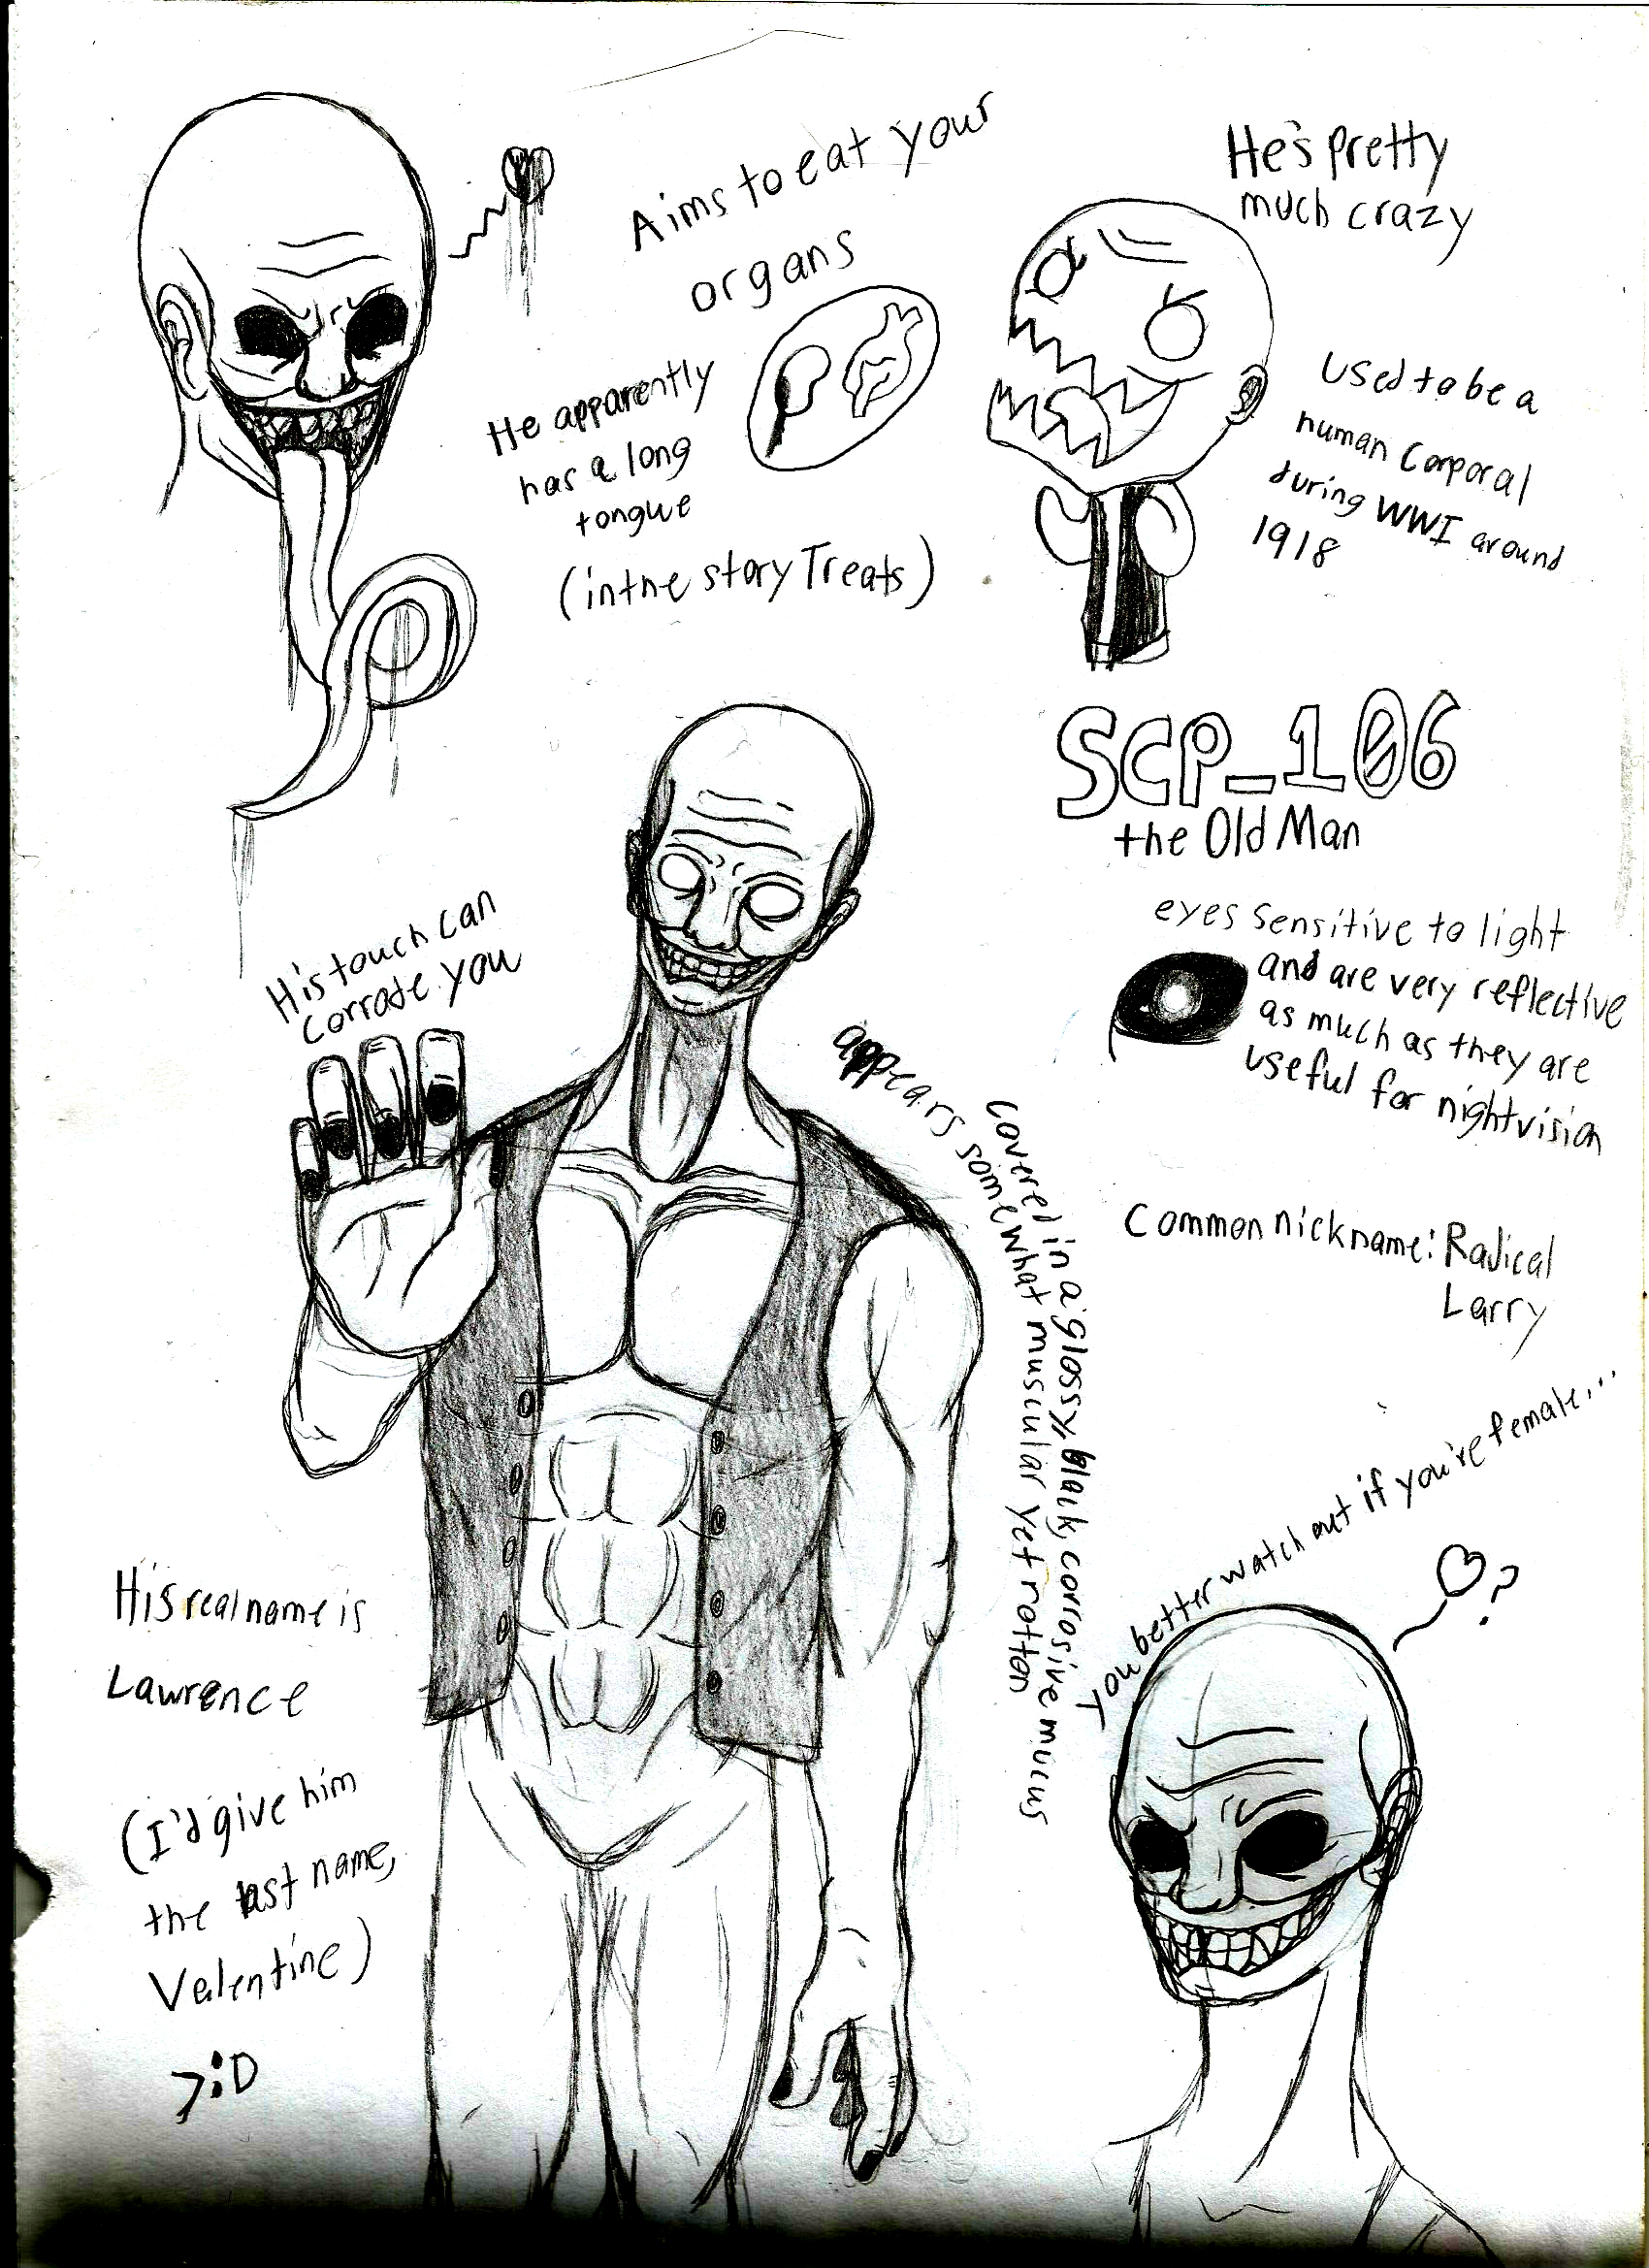 Aims to eat your
organs
He's pretty
much crazy
He apparently
has a long
tongue
(in the story Treats)
Used to be a
human Corporal
during WWI around
1918
SCP_106
the Old Man
eyes sensitive to light
and are very reflective
as much as they are
useful for nightvision
His touch can
corrode you
appears somewhat muscular yet rotton
covered in a glossy black, corrosive mucus
Common nickname: Radical
Larry
you better watch out if you're female...
?
His real name is
Lawrence
(I'd give him
the last name,
Valentine)
>:D